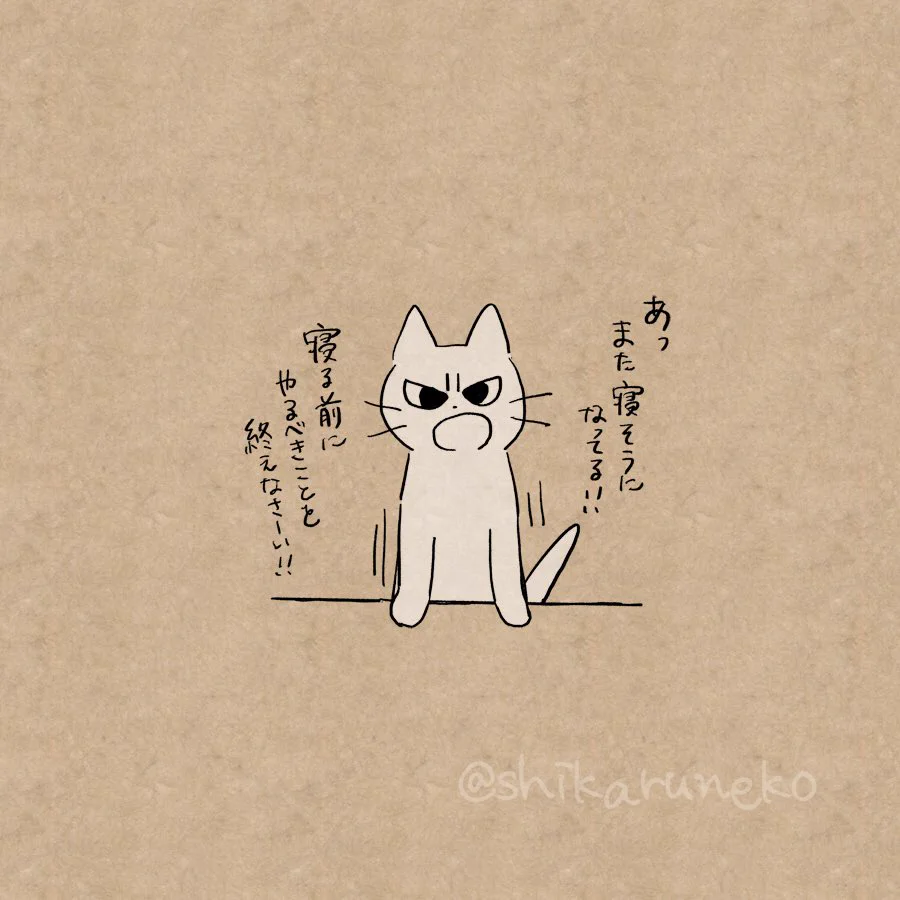 あっ
また寝そうに
なってる!!
寝る前に
やるべきことを
終えなさーい!!
@shikaruneko